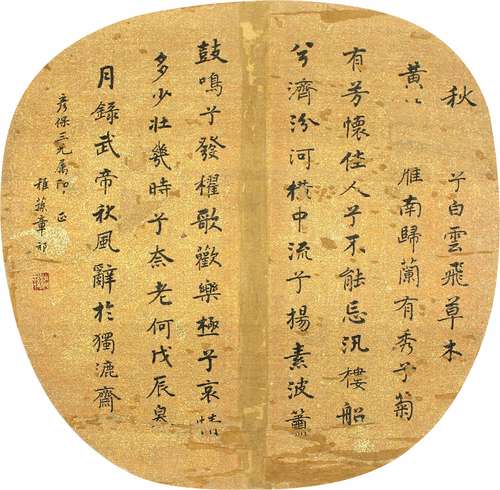 秋兮白雲飛草木
黃雁南歸蘭有秀兮菊
有芳懷佳人兮不能忘汎樓船
兮濟汾河橫中流兮揚素波蕭
鼓鳴兮發櫂歌歡樂極兮哀情
多少壯幾時兮奈老何戊辰
月錄武帝秋風辭於獨漉齋
彥保三兄屬即正
章